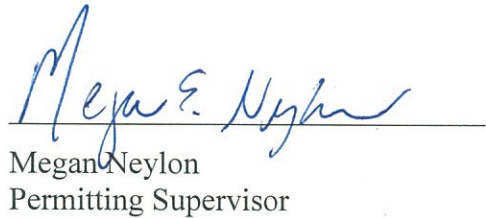 Megan E. Neylon
Megan Neylon
Permitting Supervisor